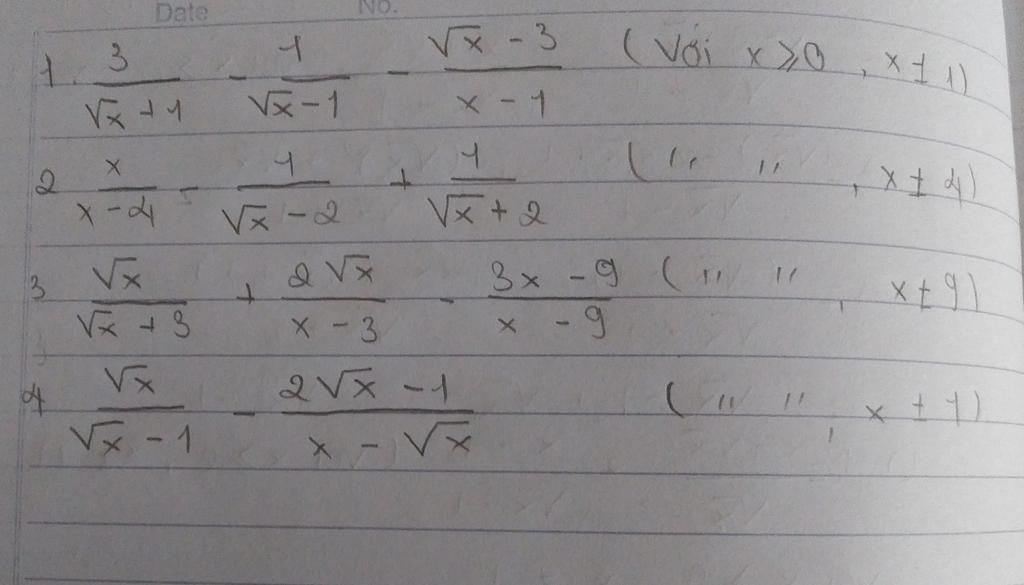 Date No.
1. \frac{3}{\sqrt{x}+1} - \frac{1}{\sqrt{x}-1} - \frac{\sqrt{x}-3}{x-1} (Với x ⩾ 0, x ≠ 1)
2 \frac{x}{x-4} - \frac{1}{\sqrt{x}-2} + \frac{1}{\sqrt{x}+2} ( '' '' , x ≠ 4)
3 \frac{\sqrt{x}}{\sqrt{x}+3} + \frac{2\sqrt{x}}{x-3} - \frac{3x-9}{x-9} ( '' '' , x ≠ 9)
4 \frac{\sqrt{x}}{\sqrt{x}-1} - \frac{2\sqrt{x}-1}{x-\sqrt{x}} ( '' '' , x ≠ 1)